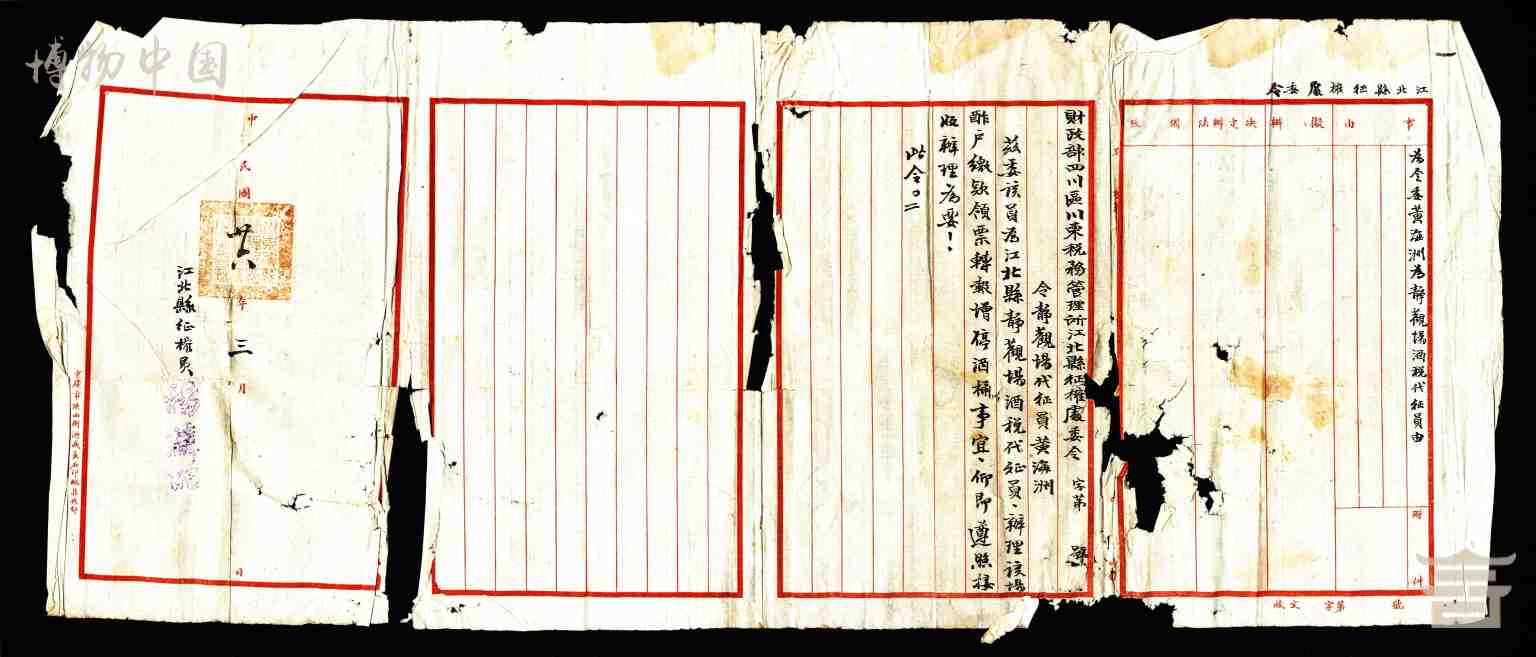 江北縣征榷處委令
事由 擬辦 決定辦法 備攷
為令委黃海洲為靜觀場酒稅代征員由
附件
收文 字第 號
財政部四川區川東稅務管理所江北縣征榷處委令 字第 號
令靜觀場代征員黃海洲
茲委該員為江北縣靜觀場酒稅代征員、辦理該場
酢戶繳欵領票轉報增停酒桶事宜、仰即遵照接
收辦理為要！
此令。
中 民國 廿六 年 三 月 日
江北縣征榷員
博物中国